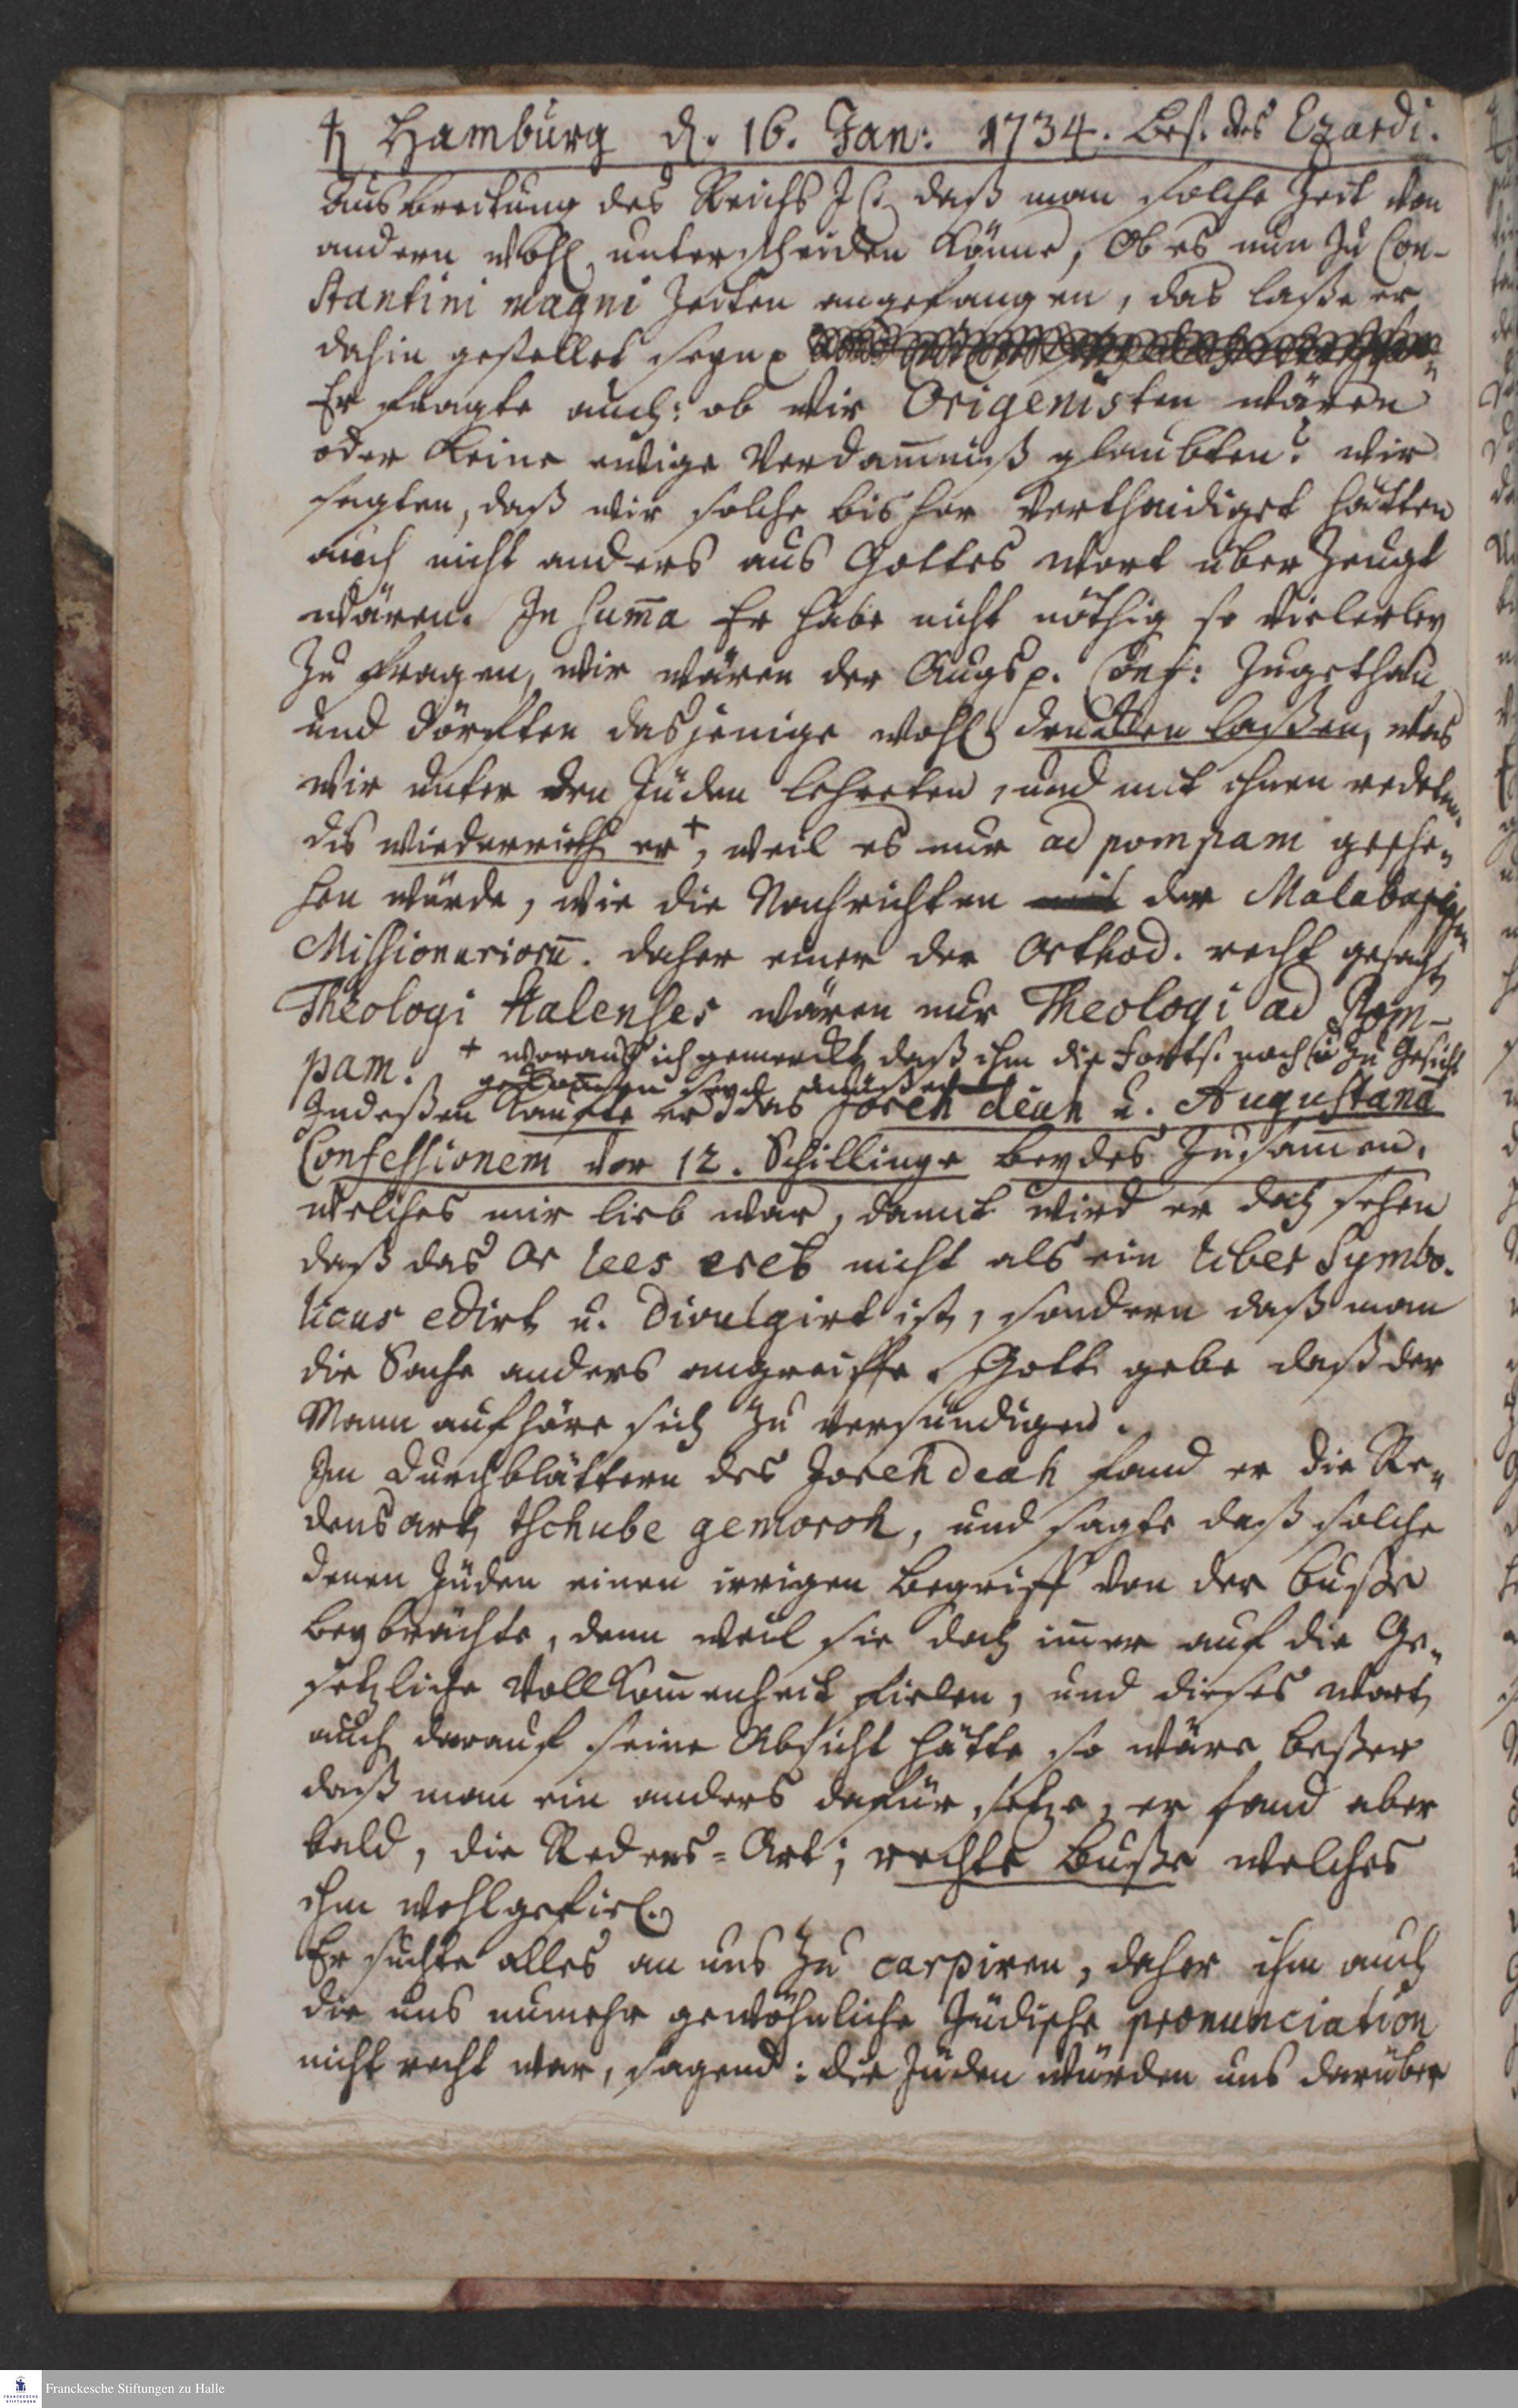 ♄ Hamburg d. 16. Jan: 1734. bes. des Ezardi.
ausbreitung des Reichs J C. daß man solche Zeit von
andern wohl unterscheiden könne, Ob es nun zu Con-
stantini magni Zeiten angefangen, das laße er
dahin gestellet seyn
Er fragte auch: ob wir Origenisten wären
oder keine ewige Verdam̅niß glaubten? wir
sagten, daß wir solche bisher vertheidiget hätten
auch nicht anders aus Gottes Wort überzeugt
wären. In Sum̅a Er habe nicht nöthig so vielerley
zu fragen, wir wären der Augsp. Conf: zugethan
und dörften dasjenige wohl drucken laßen, was
wir unter den Juden lehreten, und mit ihnen redeten.
dis wiederrieth er +, weil es nur ad pompam gesche-
hen würde, wie die Nachrichten der Malabarischen
Missionarioru̅. daher einer der Orthod. recht gesagt
Theologi Halenses wären nur Theologi ad Pom-
pam. + woraus ich gemerckt, daß ihm die Forts. noch nicht zu Gesicht
gekom̅en seyn müßen
Indeßen kaufte er das Joreh deah u. Augustana̅
Confessionem vor 12. Schillinge beydes zusam̅en.
welches mir lieb war, damit wird er doch sehen
daß das Or lees ereb nicht als ein Liber Symbo-
licus edirt u. divulgirt ist, sondern daß man
die Sache anders angreiffe. Gott gebe daß der
Mann aufhöre sich zu versündigen.
Im Durchblättern des Joreh deah fand er die Re-
densart, tschube gemoroh, und sagte daß solche
denen Juden einen irrigen Begriff von der Buße
beybrächte, denn weil sie doch im̅er auf die Ge-
setzliche Vollkom̅enheit fielen, und dieses Wort
auch darauf seine Absicht hätte so wäre beßer
daß man ein anders dafür setze, er fand aber
bald, die Redens-Art; rechte Buße welches
ihm wohlgefiel.
Er suchte alles an uns zu carpiren, daher ihm auch
die uns numehr gewöhnliche Jüdische pronunciation
nicht recht war, sagend: die Juden würden uns darüber
Franckesche Stiftungen zu Halle